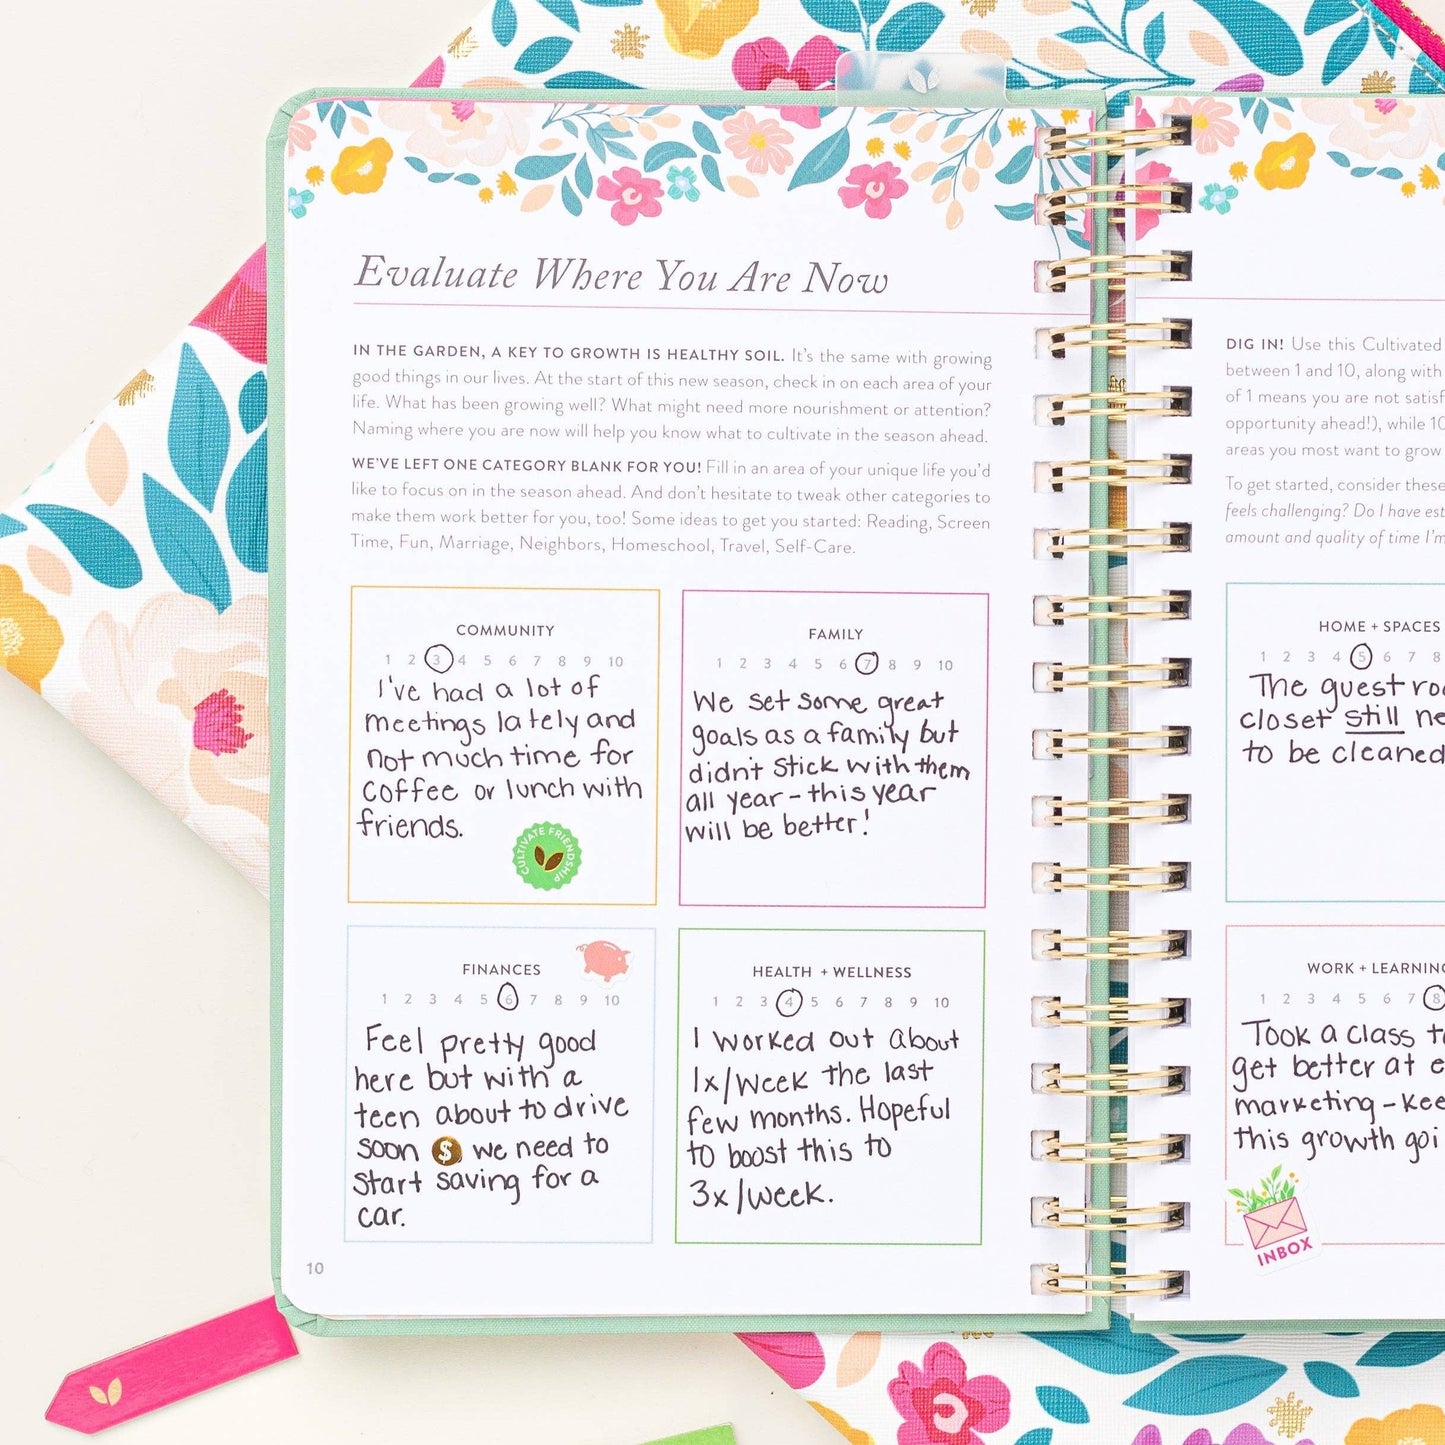 Evaluate Where You Are Now
IN THE GARDEN, A KEY TO GROWTH IS HEALTHY SOIL. It's the same with growing
good things in our lives. At the start of this new season, check in on each area of your
life. What has been growing well? What might need more nourishment or attention?
Naming where you are now will help you know what to cultivate in the season ahead.
WE'VE LEFT ONE CATEGORY BLANK FOR YOU! Fill in an area of your unique life you'd
like to focus on in the season ahead. And don't hesitate to tweak other categories to
make them work better for you, too! Some ideas to get you started: Reading, Screen
Time, Fun, Marriage, Neighbors, Homeschool, Travel, Self-Care.
COMMUNITY
1 2 3 4 5 6 7 8 9 10
I've had a lot of
meetings lately and
not much time for
coffee or lunch with
friends.
CULTIVATE FRIENDSHIP
FAMILY
1 2 3 4 5 6 7 8 9 10
We set some great
goals as a family but
didn't stick with them
all year - this year
will be better!
FINANCES
1 2 3 4 5 6 7 8 9 10
Feel pretty good
here but with a
teen about to drive
soon $ we need to
start saving for a
car.
HEALTH + WELLNESS
1 2 3 4 5 6 7 8 9 10
I worked out about
1x/week the last
few months. Hopeful
to boost this to
3x/week.
10
DIG IN! Use this Cultivated
between 1 and 10, along with
of 1 means you are not satisf
opportunity ahead!), while 10
areas you most want to grow
To get started, consider these
feels challenging? Do I have est
amount and quality of time I'm
HOME + SPACES
1 2 3 4 5 6 7 8
The guest roo
closet still ne
to be cleaned
WORK + LEARNING
1 2 3 4 5 6 7 8
Took a class to
get better at e
marketing - kee
this growth goi
INBOX